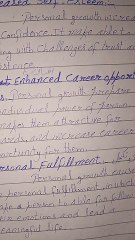 eased Self-Esteem:
Personal growth increa
confidence. It make able to
ng with challenges of trust an
stence.
at Enhanced Career opport
ts. Personal growth prepare
ndividual power of person
makes them attractive for
ards, and increase career
ortunity for them.
rsonal Fulfillment.
Personal growth can
personal fulfillment, which
a person to able to follow
emotions and lead
meaningful life.